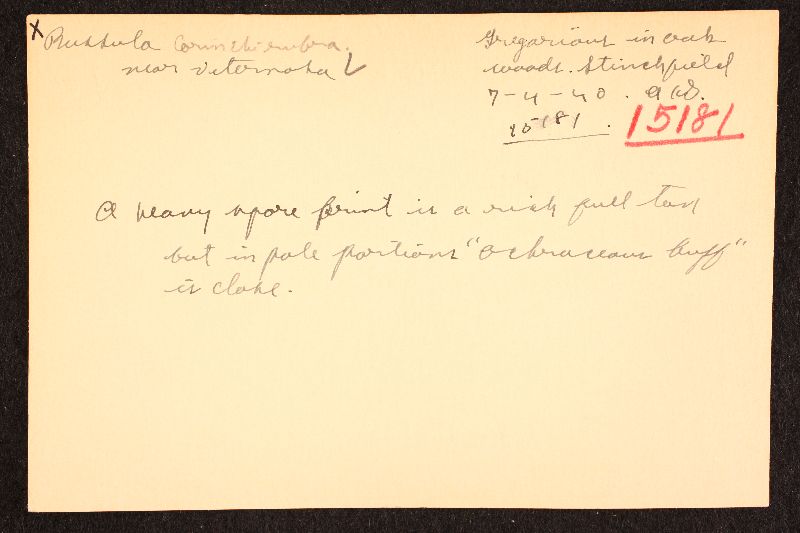 X Russula
near veternosa ✓
Gregarious in oak
woods. Stinchfield
7-4-40. AHS.
15181. 15181
A heavy spore print is a rich full tan
but in pale portions "ochraceous buff"
is close.